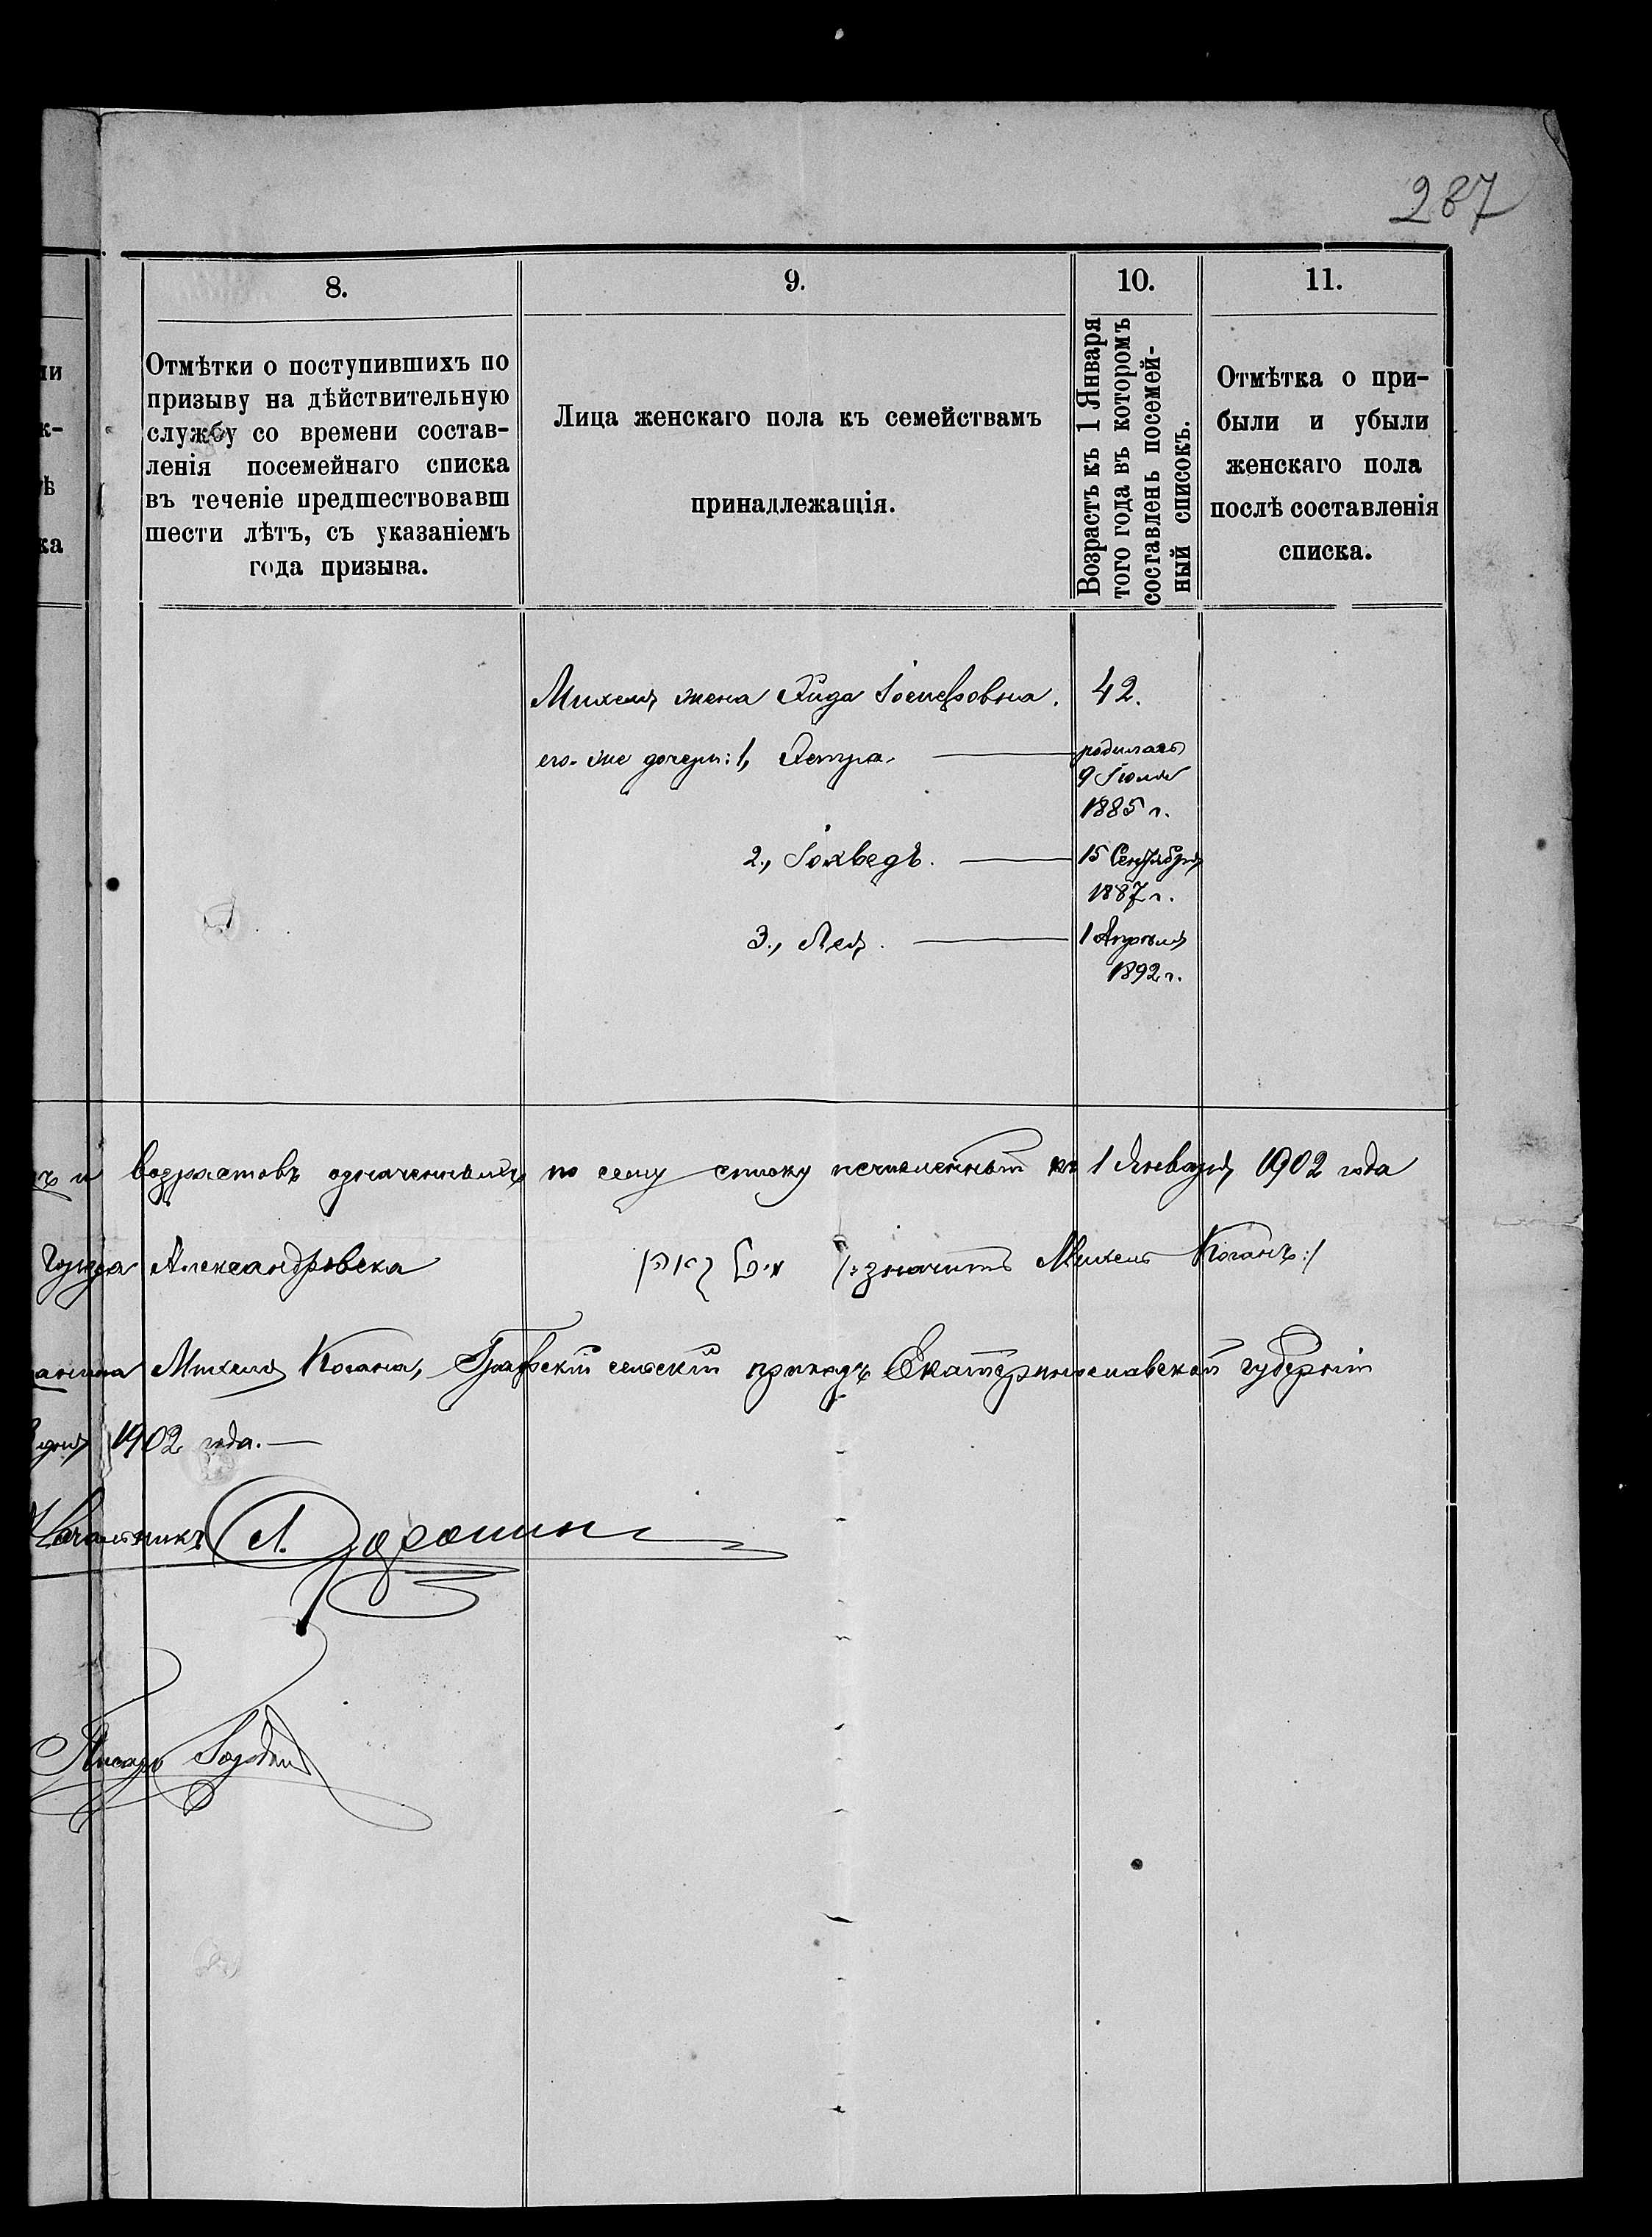 287
8.
9.
10.
11.
Отмѣтки о поступившихъ по
призыву на дѣйствительную
службу со времени состав-
ленія посемейнаго списка
въ теченіе предшествовавш
шести лѣтъ, съ указаніемъ
года призыва.
Лица женскаго пола къ семействамъ
принадлежащія.
Возрастъ къ 1 Января
того года въ которомъ
составленъ посемей-
ный списокъ.
Отмѣтка о при-
были и убыли
женскаго пола
послѣ составленія
списка.
ли
к-
ѣ
ка
Михеля жена Іосифовна. 42.
его-же дочери: 1, родилась
9 Іюля
1885 г.
2., Іохведъ. 15 Сентября
1887 г.
3., Лея. 1 Апрѣля
1892 г.
ъ и возрастовъ означенныхъ по сему списку исчисленныя къ 1 Января 1902 года
города Александровска /:значитъ Михель Коганъ:/
анина Михеля Когана, Графскій сельскій приказъ Екатеринославской губерніи
1902 года.—
Начальникъ
Писарь